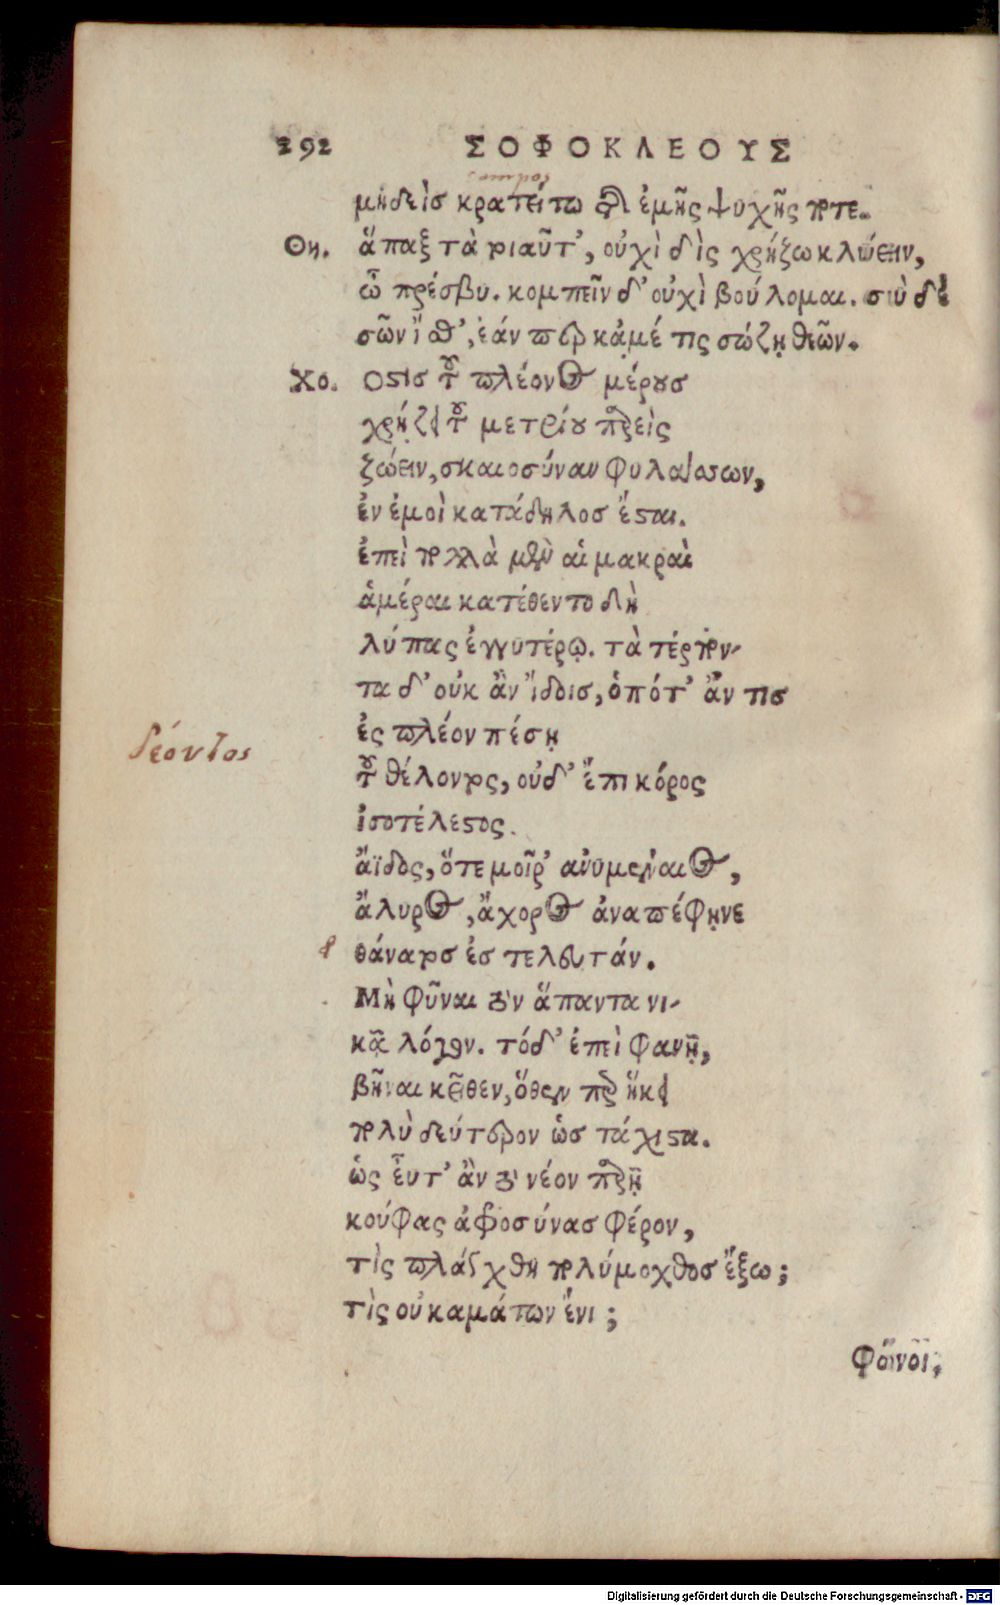 292 ΣΟΦΟΚΛΕΟΥΣ
μηδεὶσ κρατείτω τῆς ἐμῆς ψυχῆς ποτε.
Θη. ἅπαξ τὰ τοιαῦτ', οὐχὶ δὶς χρήζω κλύειν,
ὦ πρέσβυ. κομπεῖν δ' οὐχὶ βούλομαι. σὺ δὲ
σῶν ἴσθ', ἐάν περ κᾀμέ τις σώζῃ θεῶν.
Χο. Οστισ τοῦ πλέονος μέρουσ
χρῄζει τοῦ μετρίου παρεὶς
ζώειν, σκαιοσύναν φυλάσσων,
ἐν ἐμοὶ κατάδηλοσ ἔσται.
ἐπεὶ πολλὰ μὲν αἱ μακραὶ
ἁμέραι κατέθεντο δὴ
λύπας ἐγγυτέρῳ. τὰ τέρπον-
τα δ' οὐκ ἂν ἴδοισ, ὁπότ' ἄν τισ
ἐς πλέον πέσῃ
δέοντος
τοῦ θέλοντος, οὐδ' ἔπι κόρος
ἰσοτέλεστος.
ἄϊδος, ὅτε μοῖρ' ἀνυμέναιος,
ἄλυρος, ἄχορος ἀναπέφηνε
θάνατοσ ἐσ τελευτάν.
Μὴ φῦναι τὸν ἅπαντα νι-
κᾷ λόγον. τόδ' ἐπεὶ φανῇ,
βῆναι κεῖθεν, ὅθεν περ ἥκει
πολὺ δεύτερον ὡσ τάχιστα.
ὡς εὖτ' ἂν τὸ νέον παρῇ
κούφας ἀφροσύνασ φέρον,
τίς πλάγχθη πολύμοχθοσ ἔξω;
τίς οὐ καμάτων ἔνι;
Φόνοι,
Digitalisierung gefördert durch die Deutsche Forschungsgemeinschaft - DFG